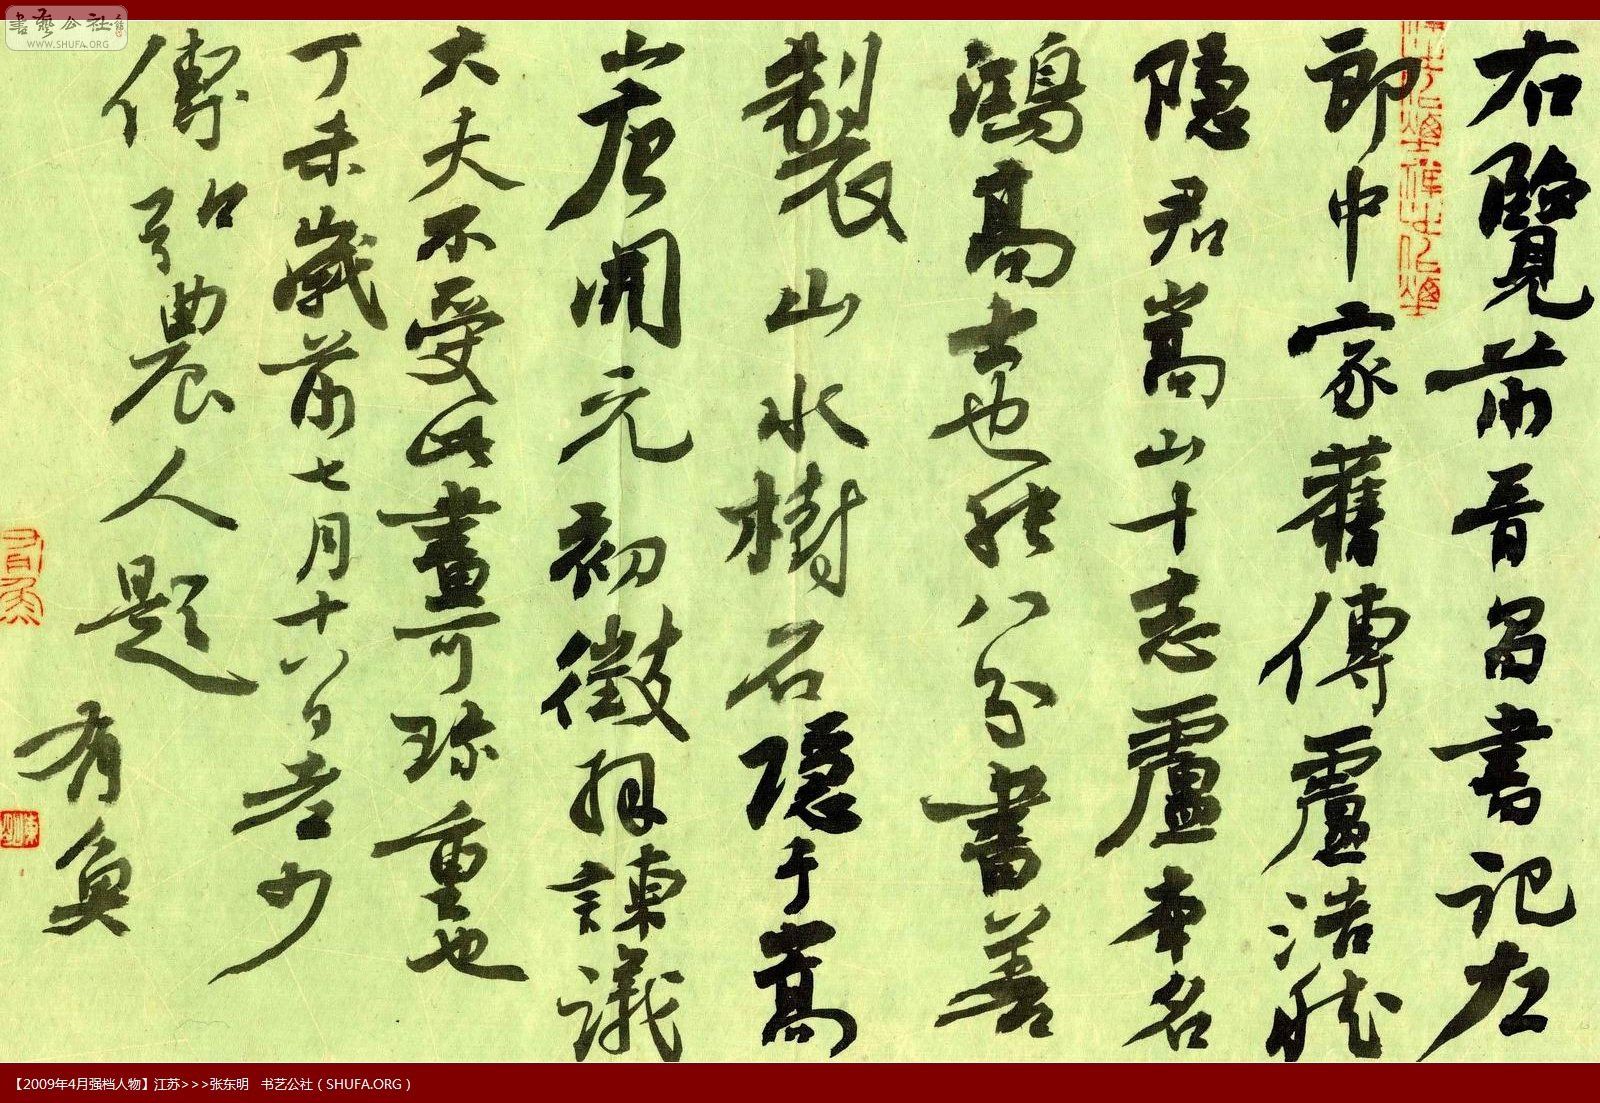 書艺公社
WWW.SHUFA.ORG
右覽前晉昌書記左
郎中家舊傳盧浩然
隱君嵩山十志盧本名
鴻高士也能八分書善
製山水樹石隱于嵩
山唐開元初徵拜諫議
大夫不受此畫可珍重也
丁未歲前七月十八日老少
傅弘農人題 有
【2009年4月强档人物】江苏>>>张东明 书艺公社（SHUFA.ORG）